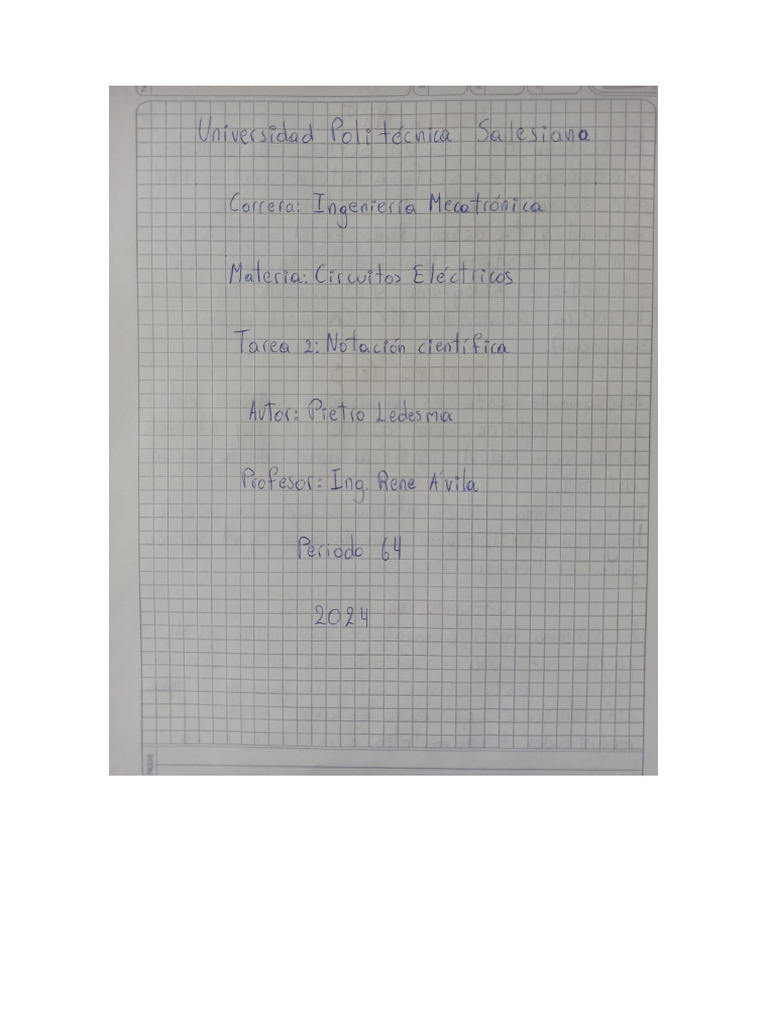 Universidad Politécnica Salesiana
Carrera: Ingeniería Mecatrónica
Materia: Circuitos Eléctricos
Tarea 2: Notación científica
Autor: Pietro Ledesma
Profesor: Ing. Rene Ávila
Periodo 64
2024